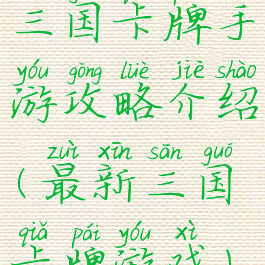 三国卡牌手
yóu gōng lüè jiè shào
游攻略介绍
zuì xīn sān guó
(最新三国
qiǎ pái yóu xì
卡牌游戏)